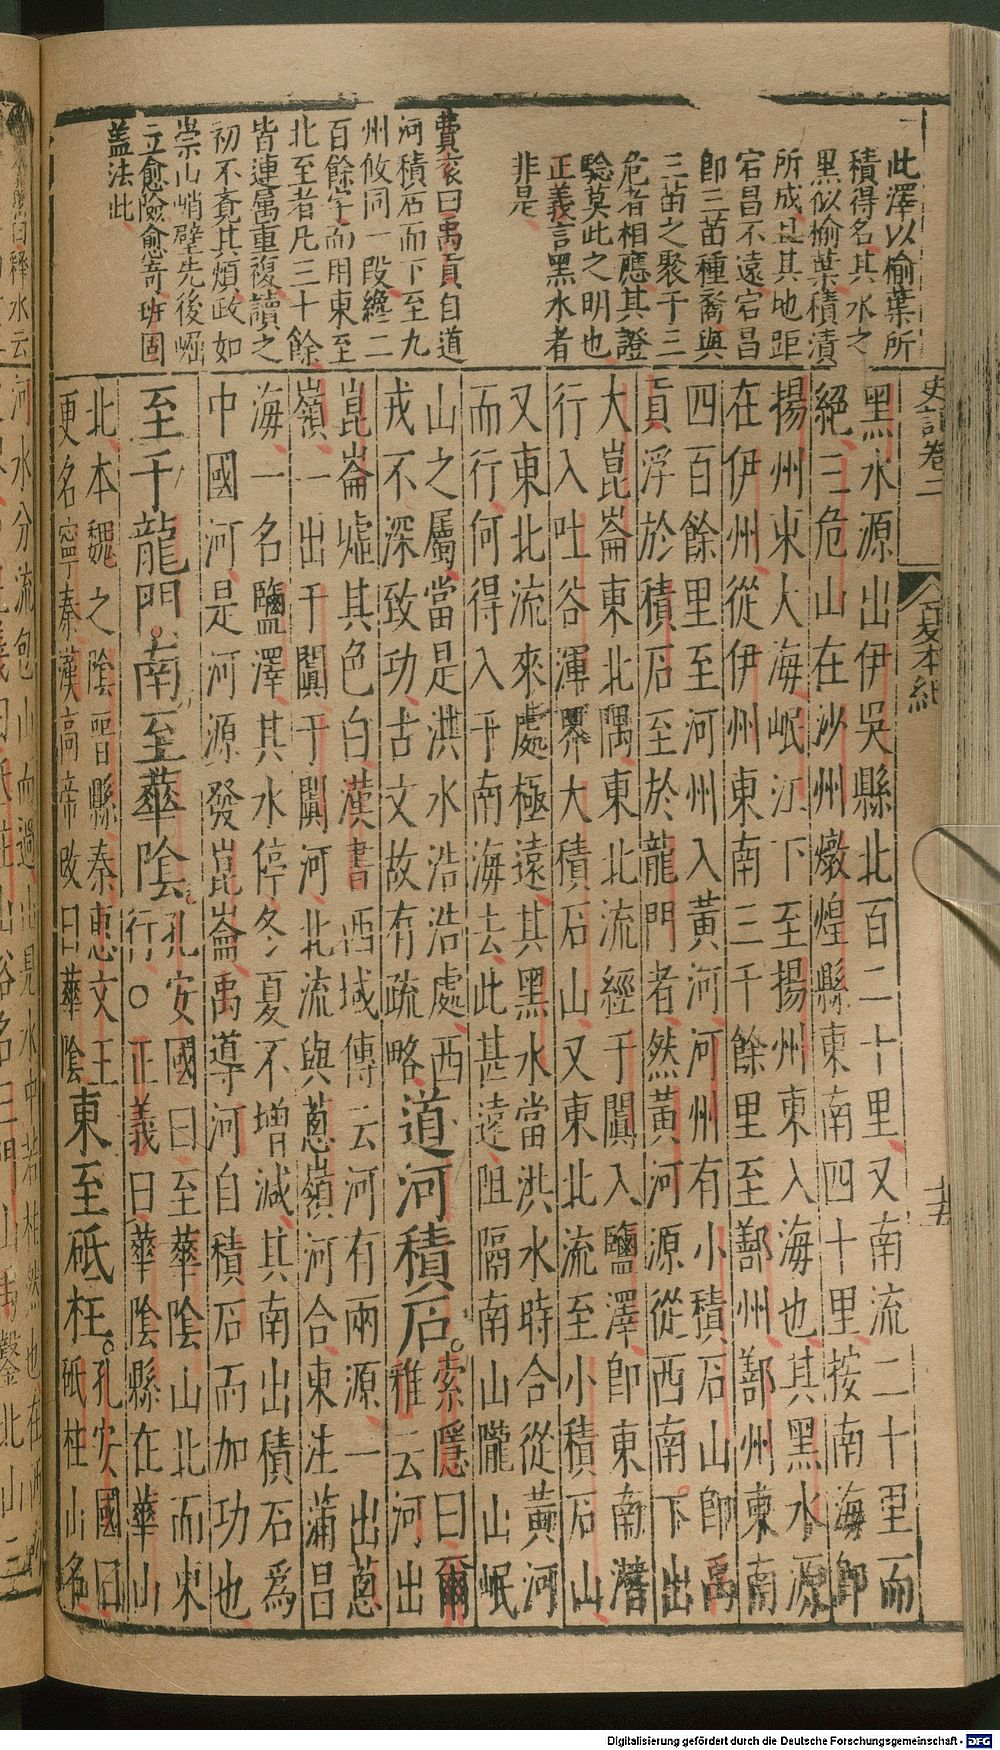 此澤以榆葉所
積得名其水之
黑似榆葉積漬
所成且其地距
宕昌不遠宕昌
卽三苗種裔與
三苗之聚于三
危者相應其證
驗莫此之明也
正義言黑水者
非是
費袞曰禹貢自道
河積石而下至九
州攸同一段纔二
百餘字而用東至
北至者凡三十餘
皆連屬重複讀之
初不竟其煩政如
崇山峭壁先後崛
立愈險愈奇班固
蓋法此
史記卷二
夏本紀
十五
黑水源出伊吳縣北百二十里又南流二十里而
絕三危山在沙州燉煌縣東南四十里按南海卽
揚州東大海岷江下至揚州東入海也其黑水源
在伊州從伊州東南三千餘里至鄯州鄯州東南
四百餘里至河州入黃河河州有小積石山卽禹
貢浮於積石至於龍門者然黃河源從西南下出
大崑崙東北隅東北流經于闐入鹽澤卽東南潛
行入吐谷渾界大積石山又東北流至小積石山
又東北流來處極遠其黑水當洪水時合從黃河
而行何得入于南海去此甚遠阻隔南山隴山岷
山之屬當是洪水浩浩處西
戎不深致功古文故有疏略
道河積石。
索隱曰爾
雅云河出
崑崙墟其色白漢書西域傳云河有兩源一出蔥
嶺一出于闐于闐河北流與蔥嶺河合東注蒲昌
海一名鹽澤其水停冬夏不增減其南出積石爲
中國河是河源發崑崙禹導河自積石而加功也
至于龍門。南至華陰。
孔安國曰至華陰山北而東
行○正義曰華陰縣在華山
北本魏之陰晉縣秦惠文王
更名寧秦漢高帝改曰華陰
東至砥柱。
孔安國曰
砥柱山名
河水分流包山而過山見水中若柱然也在西
Digitalisierung gefördert durch die Deutsche Forschungsgemeinschaft - DFG